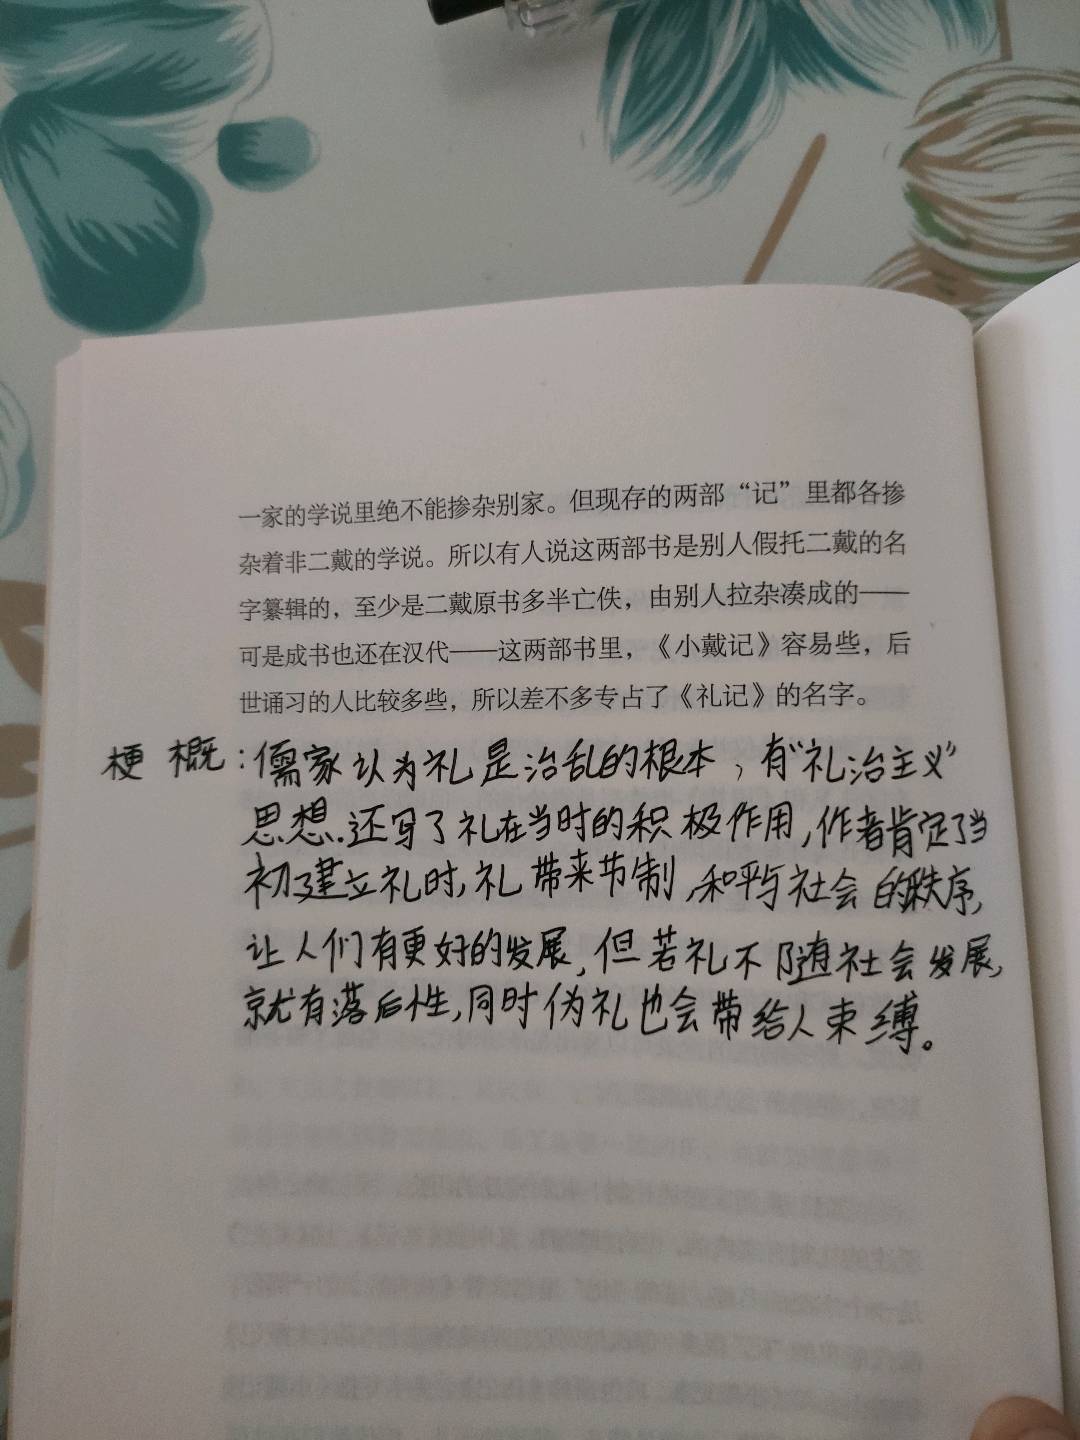 一家的学说里绝不能掺杂别家。但现存的两部“记”里都各掺
杂着非二戴的学说。所以有人说这两部书是别人假托二戴的名
字纂辑的，至少是二戴原书多半亡佚，由别人拉杂凑成的——
可是成书也还在汉代——这两部书里，《小戴记》容易些，后
世诵习的人比较多些，所以差不多专占了《礼记》的名字。
梗概：儒家认为礼是治乱的根本，有“礼治主义”
思想.还写了礼在当时的积极作用,作者肯定了当
初建立礼时,礼带来节制,和平与社会的秩序,
让人们有更好的发展,但若礼不随社会发展,
就有落后性,同时伪礼也会带给人束缚。